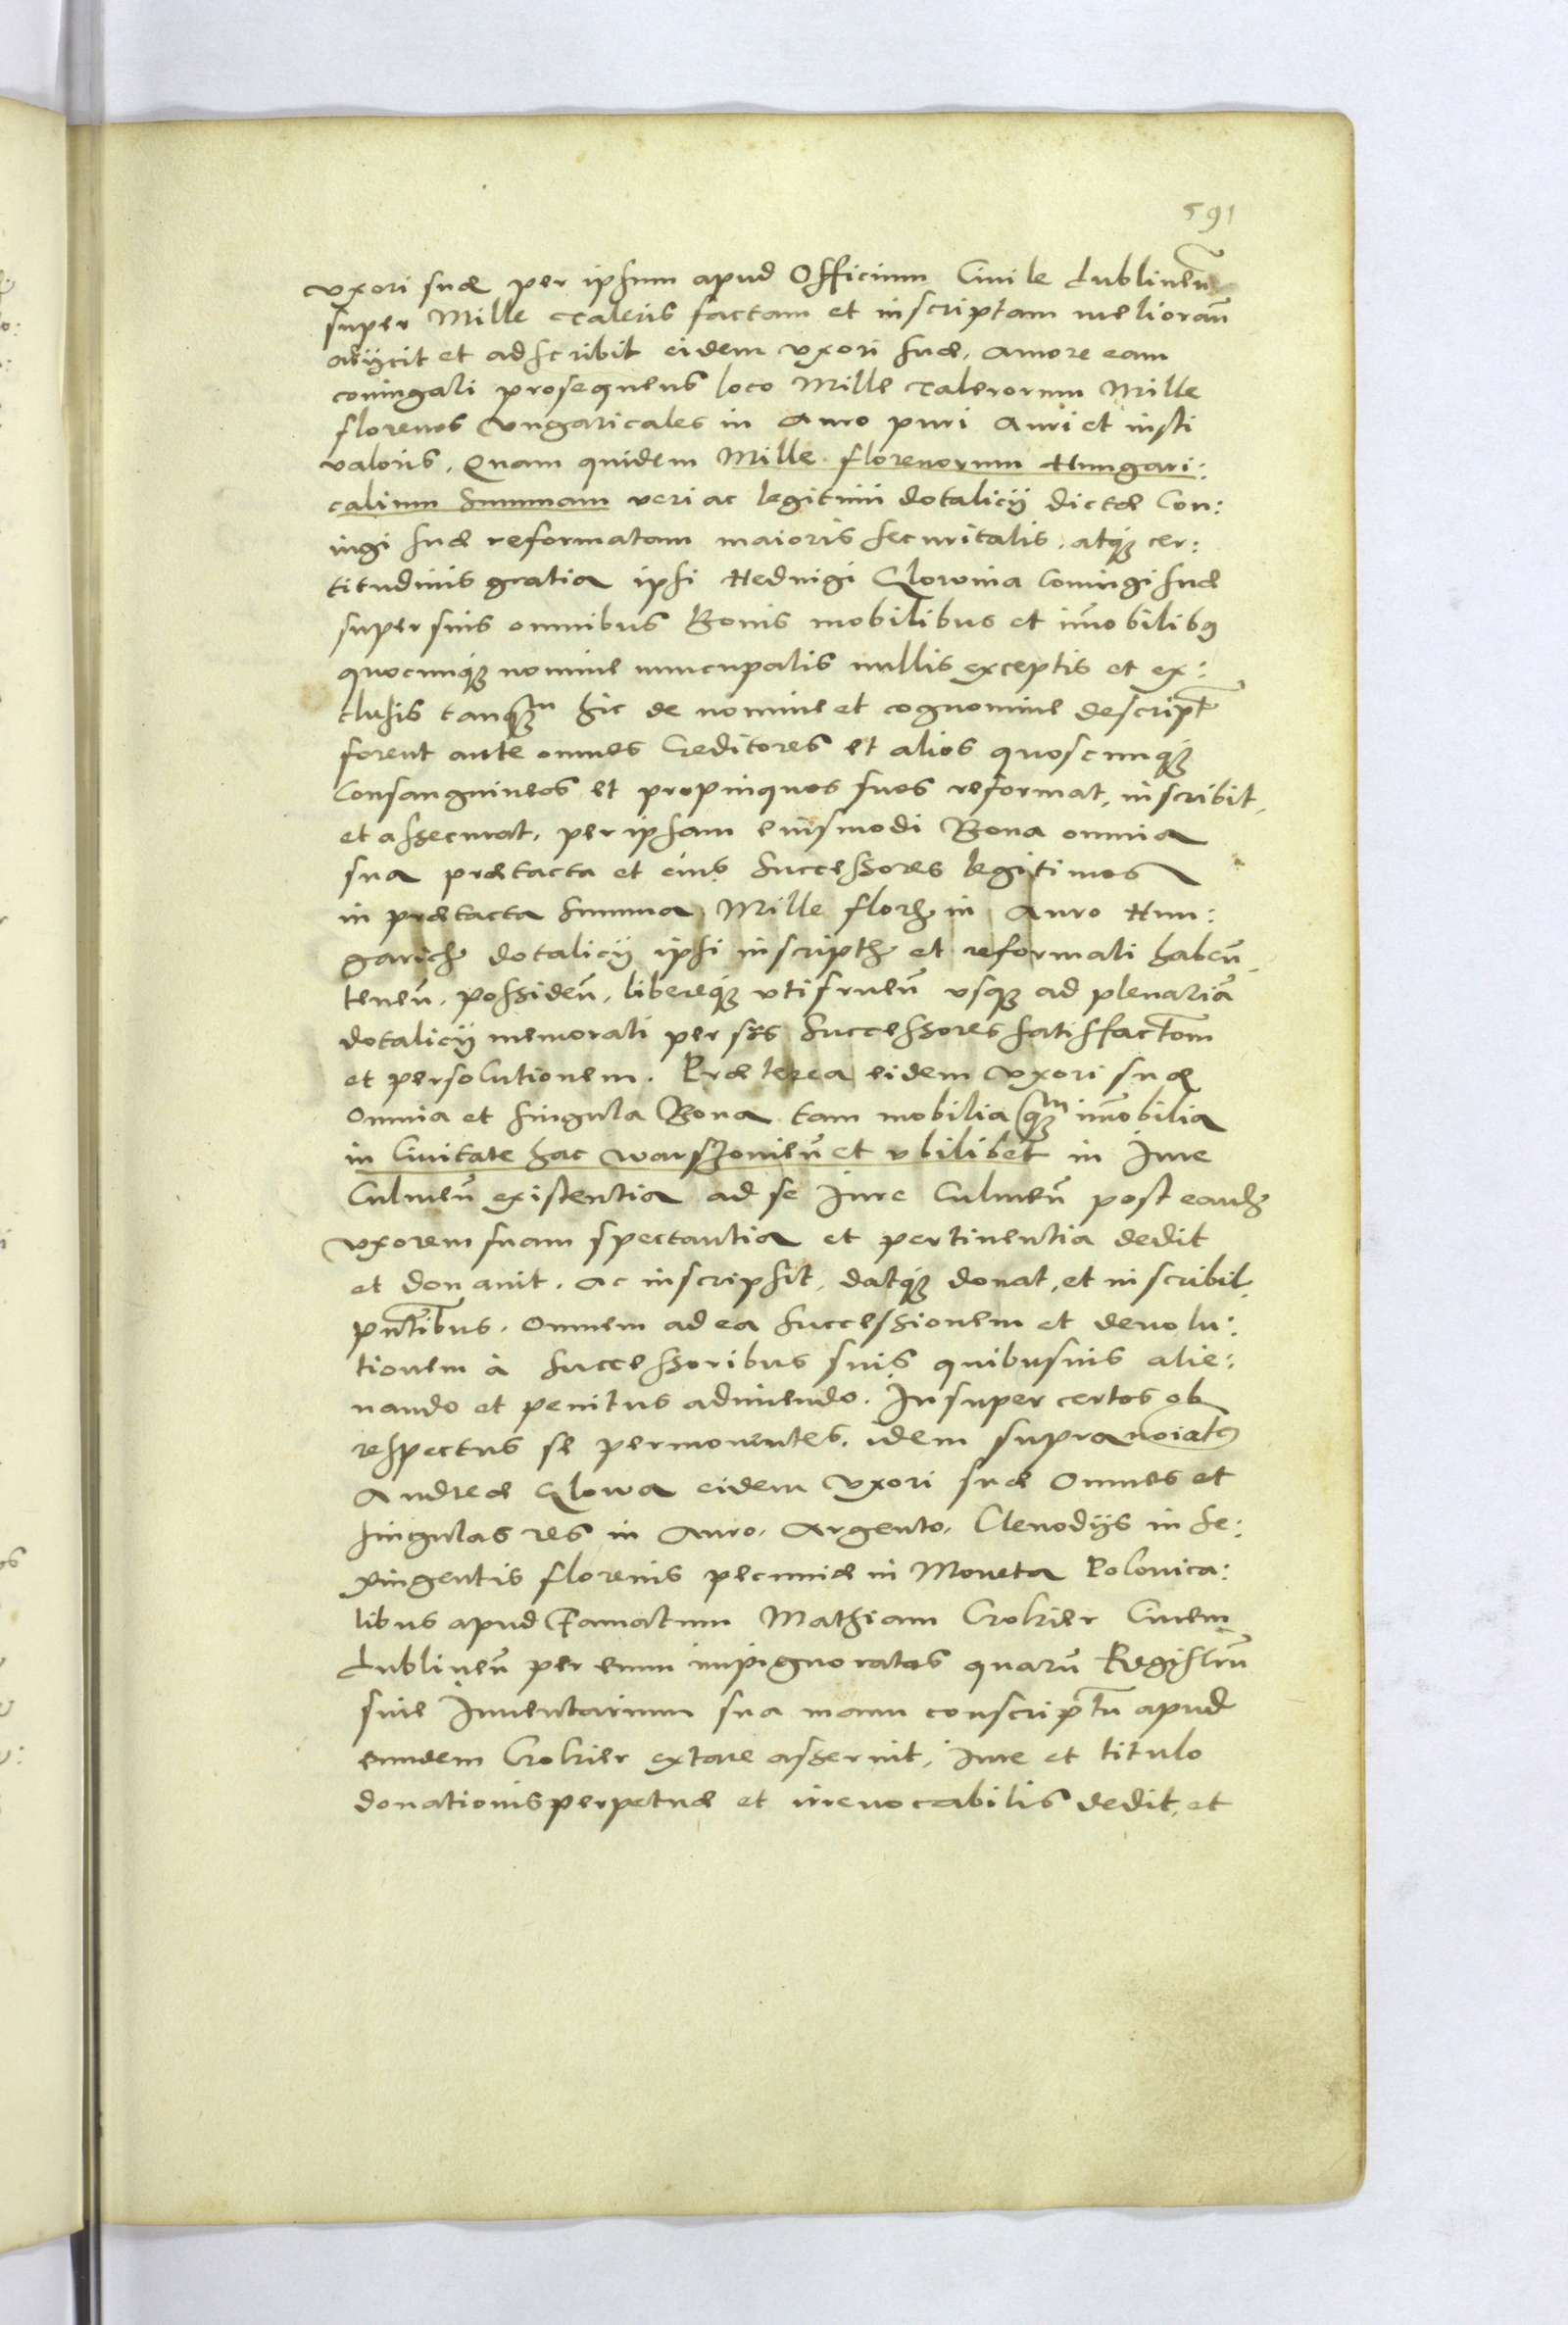 591
vxori suæ per ipsum apud Officium Ciuile Lublineñ
super Mille Taleris factam et inscriptam melioranũ
adijcit et adscribit eidem vxori suæ, amore eam
coniugali prosequens loco Mille Talerorum Mille
florenos Vngaricales in Auro puri Auri et iusti
valoris. Quam quidem Mille florenorum Hungari:
calium Summam veri ac legitimi dotalicij dictæ Con:
iugi suæ reformatam maioris securitatis, atq́ꝫ cer:
titudinis gratia ipsi Heduigi Glowina Coniugi suæ
super suis omnibus Bonis mobilibus et im̃obilibꝰ
quocunq́ꝫ nomine nuncupatis nullis exceptis et ex:
clusis tanq̃ꝫ hic de nomine et cognomine descript̃
forent ante omnes Creditores et alios quoscunq́ꝫ
Consanguineos et propinquos suos reformat, inscribit,
et assecurat, per ipsam eiusmodi Bona omnia
sua prætacta et eius Successores legitimos
in prætacta summa Mille floꝝ in Auro Hun:
garicꝝ dotalicij ipsi inscriptꝝ et reformati habeñ,
teneñ, possideñ, libereq́ꝫ vtifrueñ vsq́ꝫ ad plenariã
dotalicij memorati per sũs Successores satisfactõm
et persolutionem. Præterea eidem Vxori suæ
Omnia et singula Bona tam mobilia q̃ꝫ im̃obilia
in Ciuitate hac Warszouieñ et vbilibet in Iure
Culmeñ existentia ad se Iure Culmeñ post eandꝫ
vxorem suam spectantia et pertinentia dedit
et donauit, ac inscripsit, datq́ꝫ donat, et inscribit
pñtibus. Omnem ad ea successionem et deuolu:
tionem à successoribus suis quibusuis alie:
nando et penitus adimendo. Insuper certos ob
respectus se permouentes, idem supranoiatꝰ
Andreæ Glowa eidem Vxori suæ Omnes et
singulas res in Auro, Argento, Clenodijs in se:
xingentis florenis pecuniæ in Moneta Polonica:
libus apud Famatum Mathiam Crokier Ciuem
Lublineñ per eum impignoratas quarũ Registrũ
siue Inuentarium sua manu conscriptũ apud
eundem Crokier extare asseruit, Iure et titulo
donationis perpetuæ et irreuocabilis dedit, et